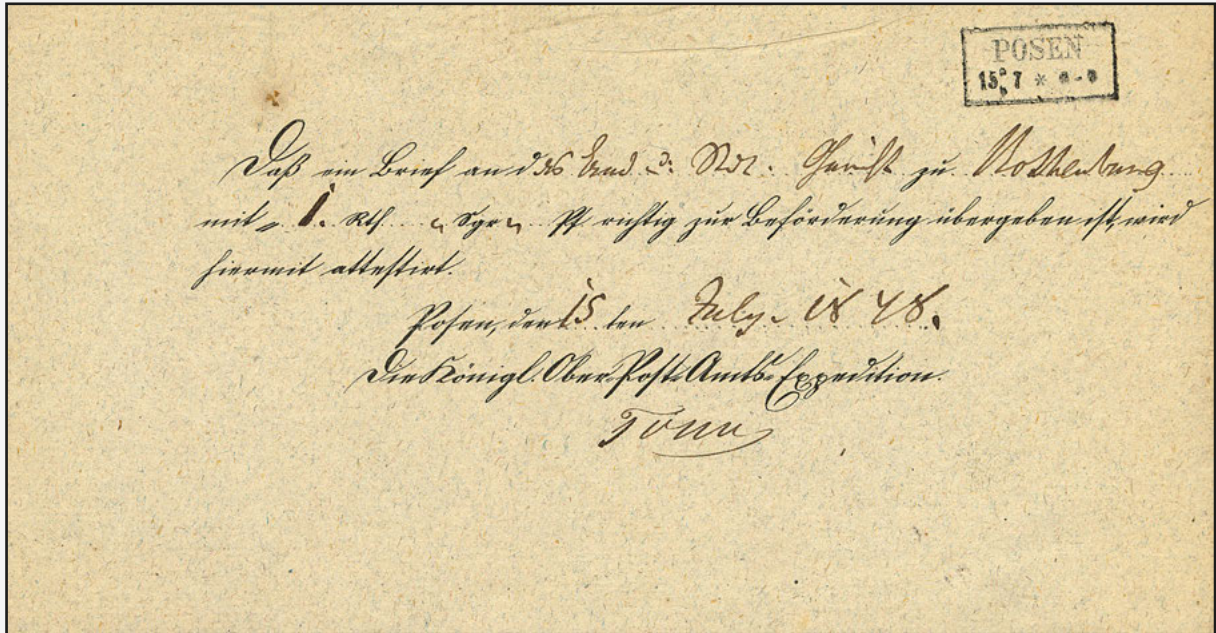 POSEN
15 7 *
Daß ein Brief an das Land u. Stdt. Gericht zu Rothenburg
mit " 1. Rth. " Sgr " Pf richtig zur Beförderung übergeben ist, wird
hiermit attestirt.
Posen, den 15 ten July. 1848.
Die Königl. Ober-Post-Amts-Expedition.